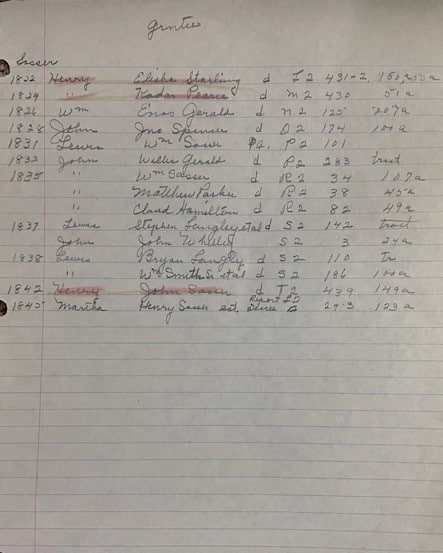 Grntee
Sasser
1822 Henry Elisha Starling d L 2 431-2 150,250a
1824 " Kadar Pearce d M 2 430 51a
1826 Wm Enos Gerald d N 2 125 207a
1828 John Jno Spinner d O 2 174 100a
1831 Lewis Wm Sasser P2. P 2 101
1832 John Willie Gerald d P 2 283 tract
1835 " Wm Sasser d R 2 34 107a
" Matthew Parker d R 2 38 45a
" Claud Hamilton d R 2 82 49a
1837 Lewis Stephen Langley etal d S 2 142 tract
John John Whitley S 2 3 24a
1838 Lewis Bryan Langley d S 2 110 tr
" Wm Smith Sr etal d S 2 186 100a
1842 Henry John Sasser d T 2 439 149a
1845 Martha Henry Sasser est. Report LD 29-3 123a